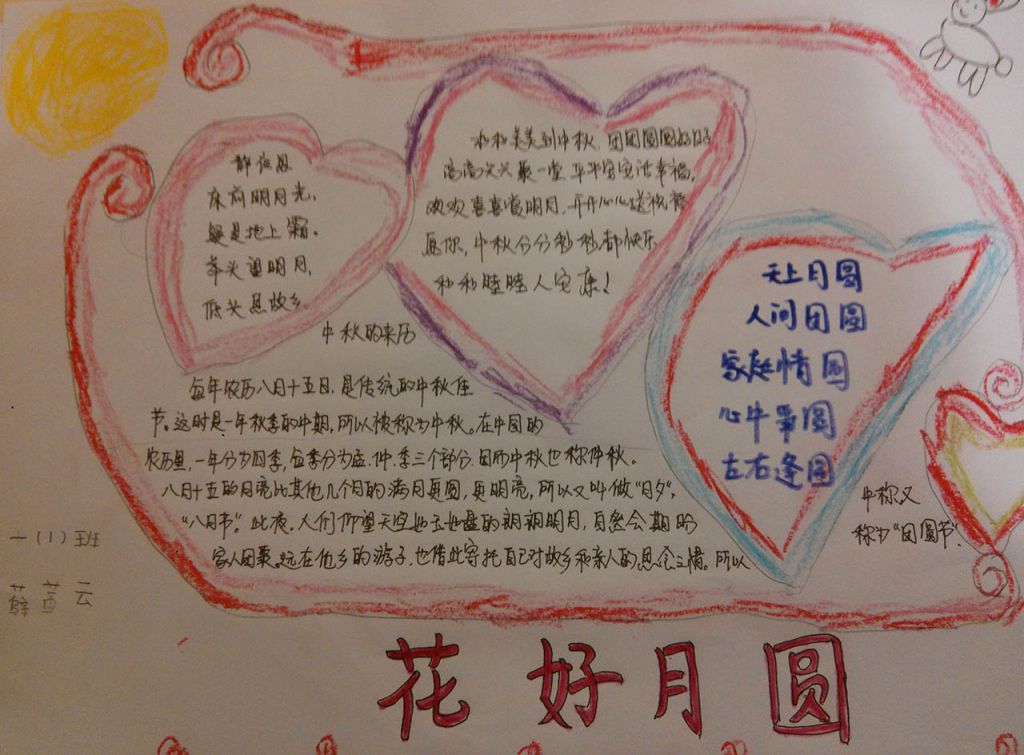 静夜思
床前明月光，
疑是地上霜。
举头望明月，
低头思故乡
和和美美到中秋，团团圆圆好好
高高兴兴聚一堂 平平安安话幸福，
欢欢喜喜赏明月，开开心心送祝福
愿你，中秋分分秒秒都快乐，
和和睦睦人安康！
天上月圆
人间团圆
家庭情圆
心中事圆
左右逢圆
中秋的来历
每年农历八月十五日，是传统的中秋佳
节。这时是一年秋季的中期，所以被称为中秋。在中国的
农历里，一年分为四季，每季分为孟、仲、季三个部分，因而中秋也称仲秋。
八月十五的月亮比其他几个月的满月更圆，更明亮，所以又叫做“月夕”，
“八月节”。此夜，人们仰望天空如玉如盘的朗朗明月，自然会期盼
家人团聚。远在他乡的游子，也借此寄托自己对故乡和亲人的思念之情。所以
中称又
称为“团圆节”。
一（1）班
云
花好月圆